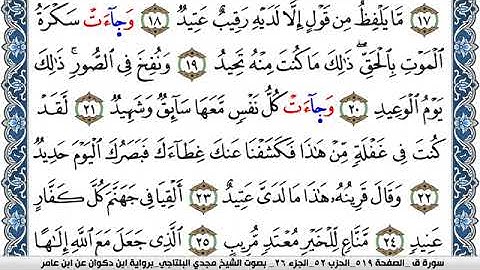 ١٧ مَّا يَلْفِظُ مِن قَوْلٍ إِلَّا لَدَيْهِ رَقِيبٌ عَتِيدٌ ١٨ وَجَآءَتْ سَكْرَةُ
الْمَوْتِ بِالْحَقِّ ۖ ذَٰلِكَ مَا كُنتَ مِنْهُ تَحِيدُ ١٩ وَنُفِخَ فِي الصُّورِ ۚ ذَٰلِكَ
يَوْمُ الْوَعِيدِ ٢٠ وَجَآءَتْ كُلُّ نَفْسٍ مَّعَهَا سَآئِقٌ وَشَهِيدٌ ٢١ لَّقَدْ
كُنتَ فِي غَفْلَةٍ مِّنْ هَٰذَا فَكَشَفْنَا عَنكَ غِطَآءَكَ فَبَصَرُكَ الْيَوْمَ حَدِيدٌ
٢٢ وَقَالَ قَرِينُهُۥ هَٰذَا مَا لَدَيَّ عَتِيدٌ ٢٣ أَلْقِيَا فِي جَهَنَّمَ كُلَّ كَفَّارٍ
عَنِيدٍ ٢٤ مَّنَّاعٍ لِّلْخَيْرِ مُعْتَدٍ مُّرِيبٍ ٢٥ الَّذِي جَعَلَ مَعَ اللَّهِ إِلَٰهًا
سورة ق _الصفحة ٥١٩_الحزب ٥٢_الجزء ٢٦_ بصوت الشيخ مجدي البلتاجي_برواية ابن ذكوان عن ابن عامر